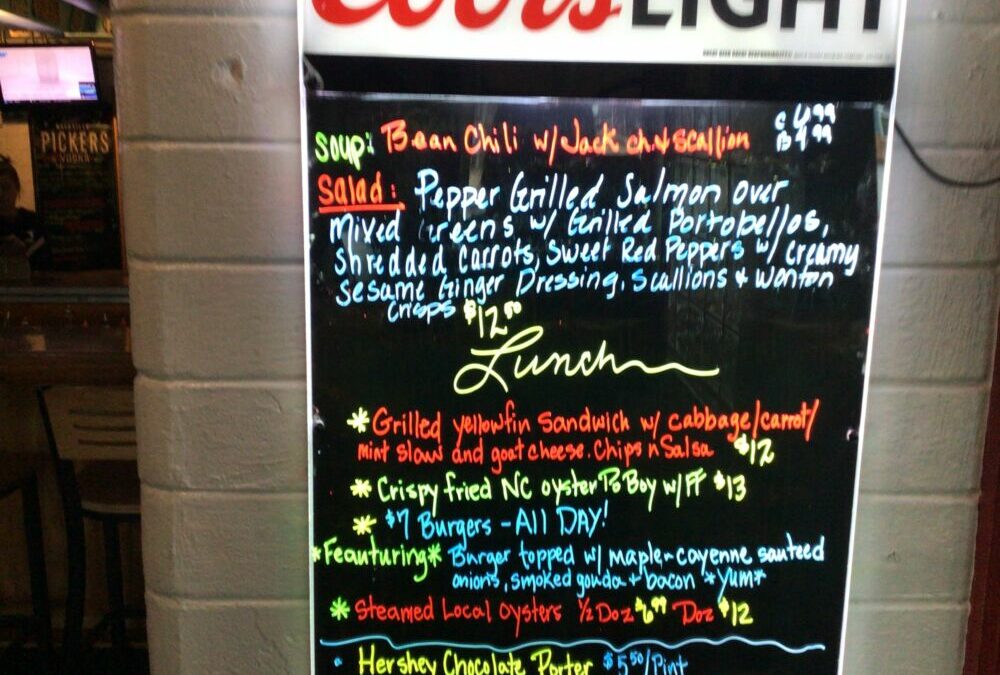 Coors LIGHT
PICKERS
VODKA
Soup: Bean Chili w/ Jack ch. & scallion
C 6.99
B 4.99
Salad: Pepper Grilled Salmon over
Mixed Greens w/ Grilled Portobellos,
Shredded Carrots, Sweet Red Peppers w/ Creamy
Sesame Ginger Dressing, Scallions + Wonton
Crisps $12.50
Lunch
* Grilled yellowfin Sandwich w/ cabbage/carrot/
mint slaw and goat cheese. Chips n Salsa $12
* Crispy fried NC oyster Po Boy w/ FF $13
* $7 Burgers - All DAY!
*Feauturing* Burger topped w/ maple-cayenne sauteed
onions, smoked gouda + bacon *Yum*
* Steamed Local oysters 1/2 Doz $6.99 Doz $12
Hershey Chocolate Porter $5.50/Pint